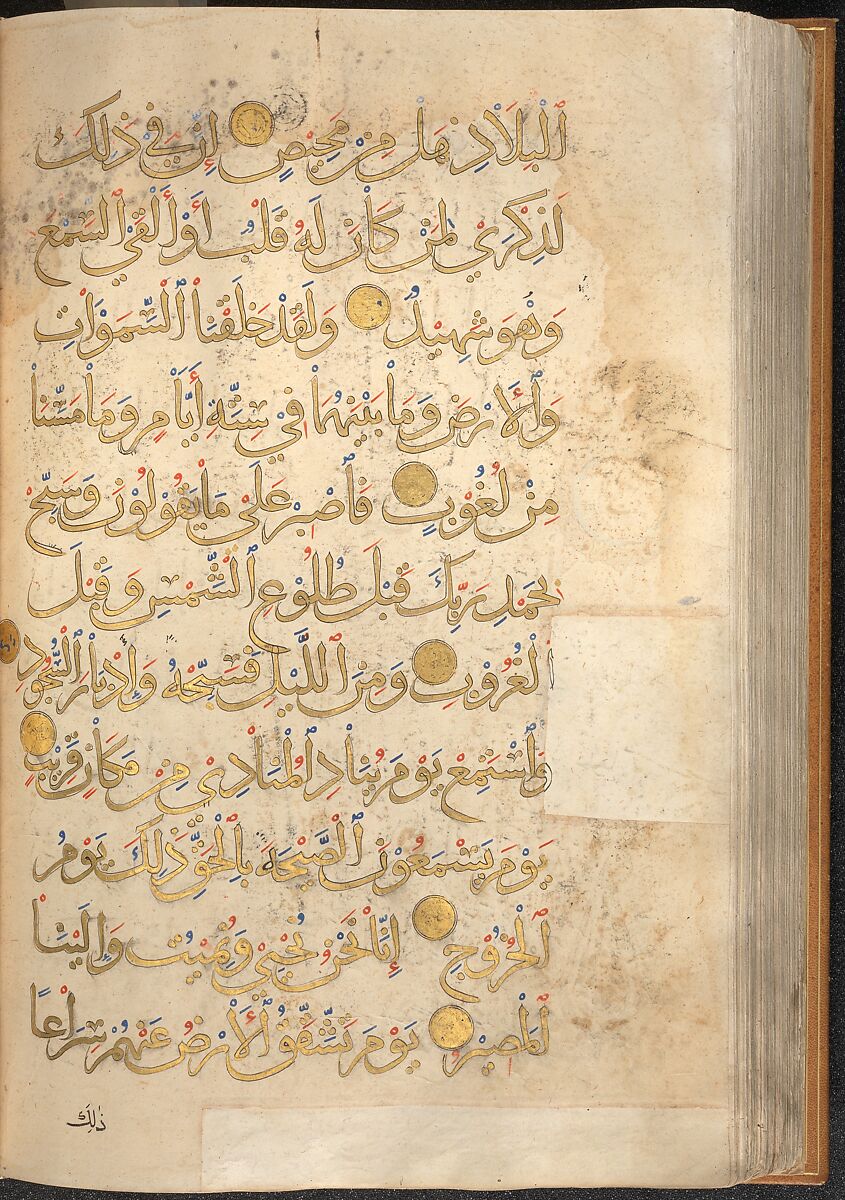 ٱلْبِلَادِ هَلْ مِنْ مَحِيصٍ إِنَّ فِي ذَٰلِكَ
لَذِكْرَىٰ لِمَنْ كَانَ لَهُ قَلْبٌ أَوْ أَلْقَى ٱلسَّمْعَ
وَهُوَ شَهِيدٌ وَلَقَدْ خَلَقْنَا ٱلسَّمَوَاتِ
وَٱلْأَرْضَ وَمَا بَيْنَهُمَا فِي سِتَّةِ أَيَّامٍ وَمَا مَسَّنَا
مِنْ لُغُوبٍ فَٱصْبِرْ عَلَىٰ مَا يَقُولُونَ وَسَبِّحْ
بِحَمْدِ رَبِّكَ قَبْلَ طُلُوعِ ٱلشَّمْسِ وَقَبْلَ
ٱلْغُرُوبِ وَمِنَ ٱللَّيْلِ فَسَبِّحْهُ وَإِدْبَارَ ٱلسُّجُودِ
وَٱسْتَمِعْ يَوْمَ يُنَادِ ٱلْمُنَادِي مِنْ مَكَانٍ قَرِيبٍ
يَوْمَ يَسْمَعُونَ ٱلصَّيْحَةَ بِٱلْحَقِّ ذَٰلِكَ يَوْمُ
ٱلْخُرُوجِ إِنَّا نَحْنُ نُحْيِي وَنُمِيتُ وَإِلَيْنَا
ٱلْمَصِيرُ يَوْمَ تَشَّقَّقُ ٱلْأَرْضُ عَنْهُمْ سِرَاعًا
ذَٰلِكَ